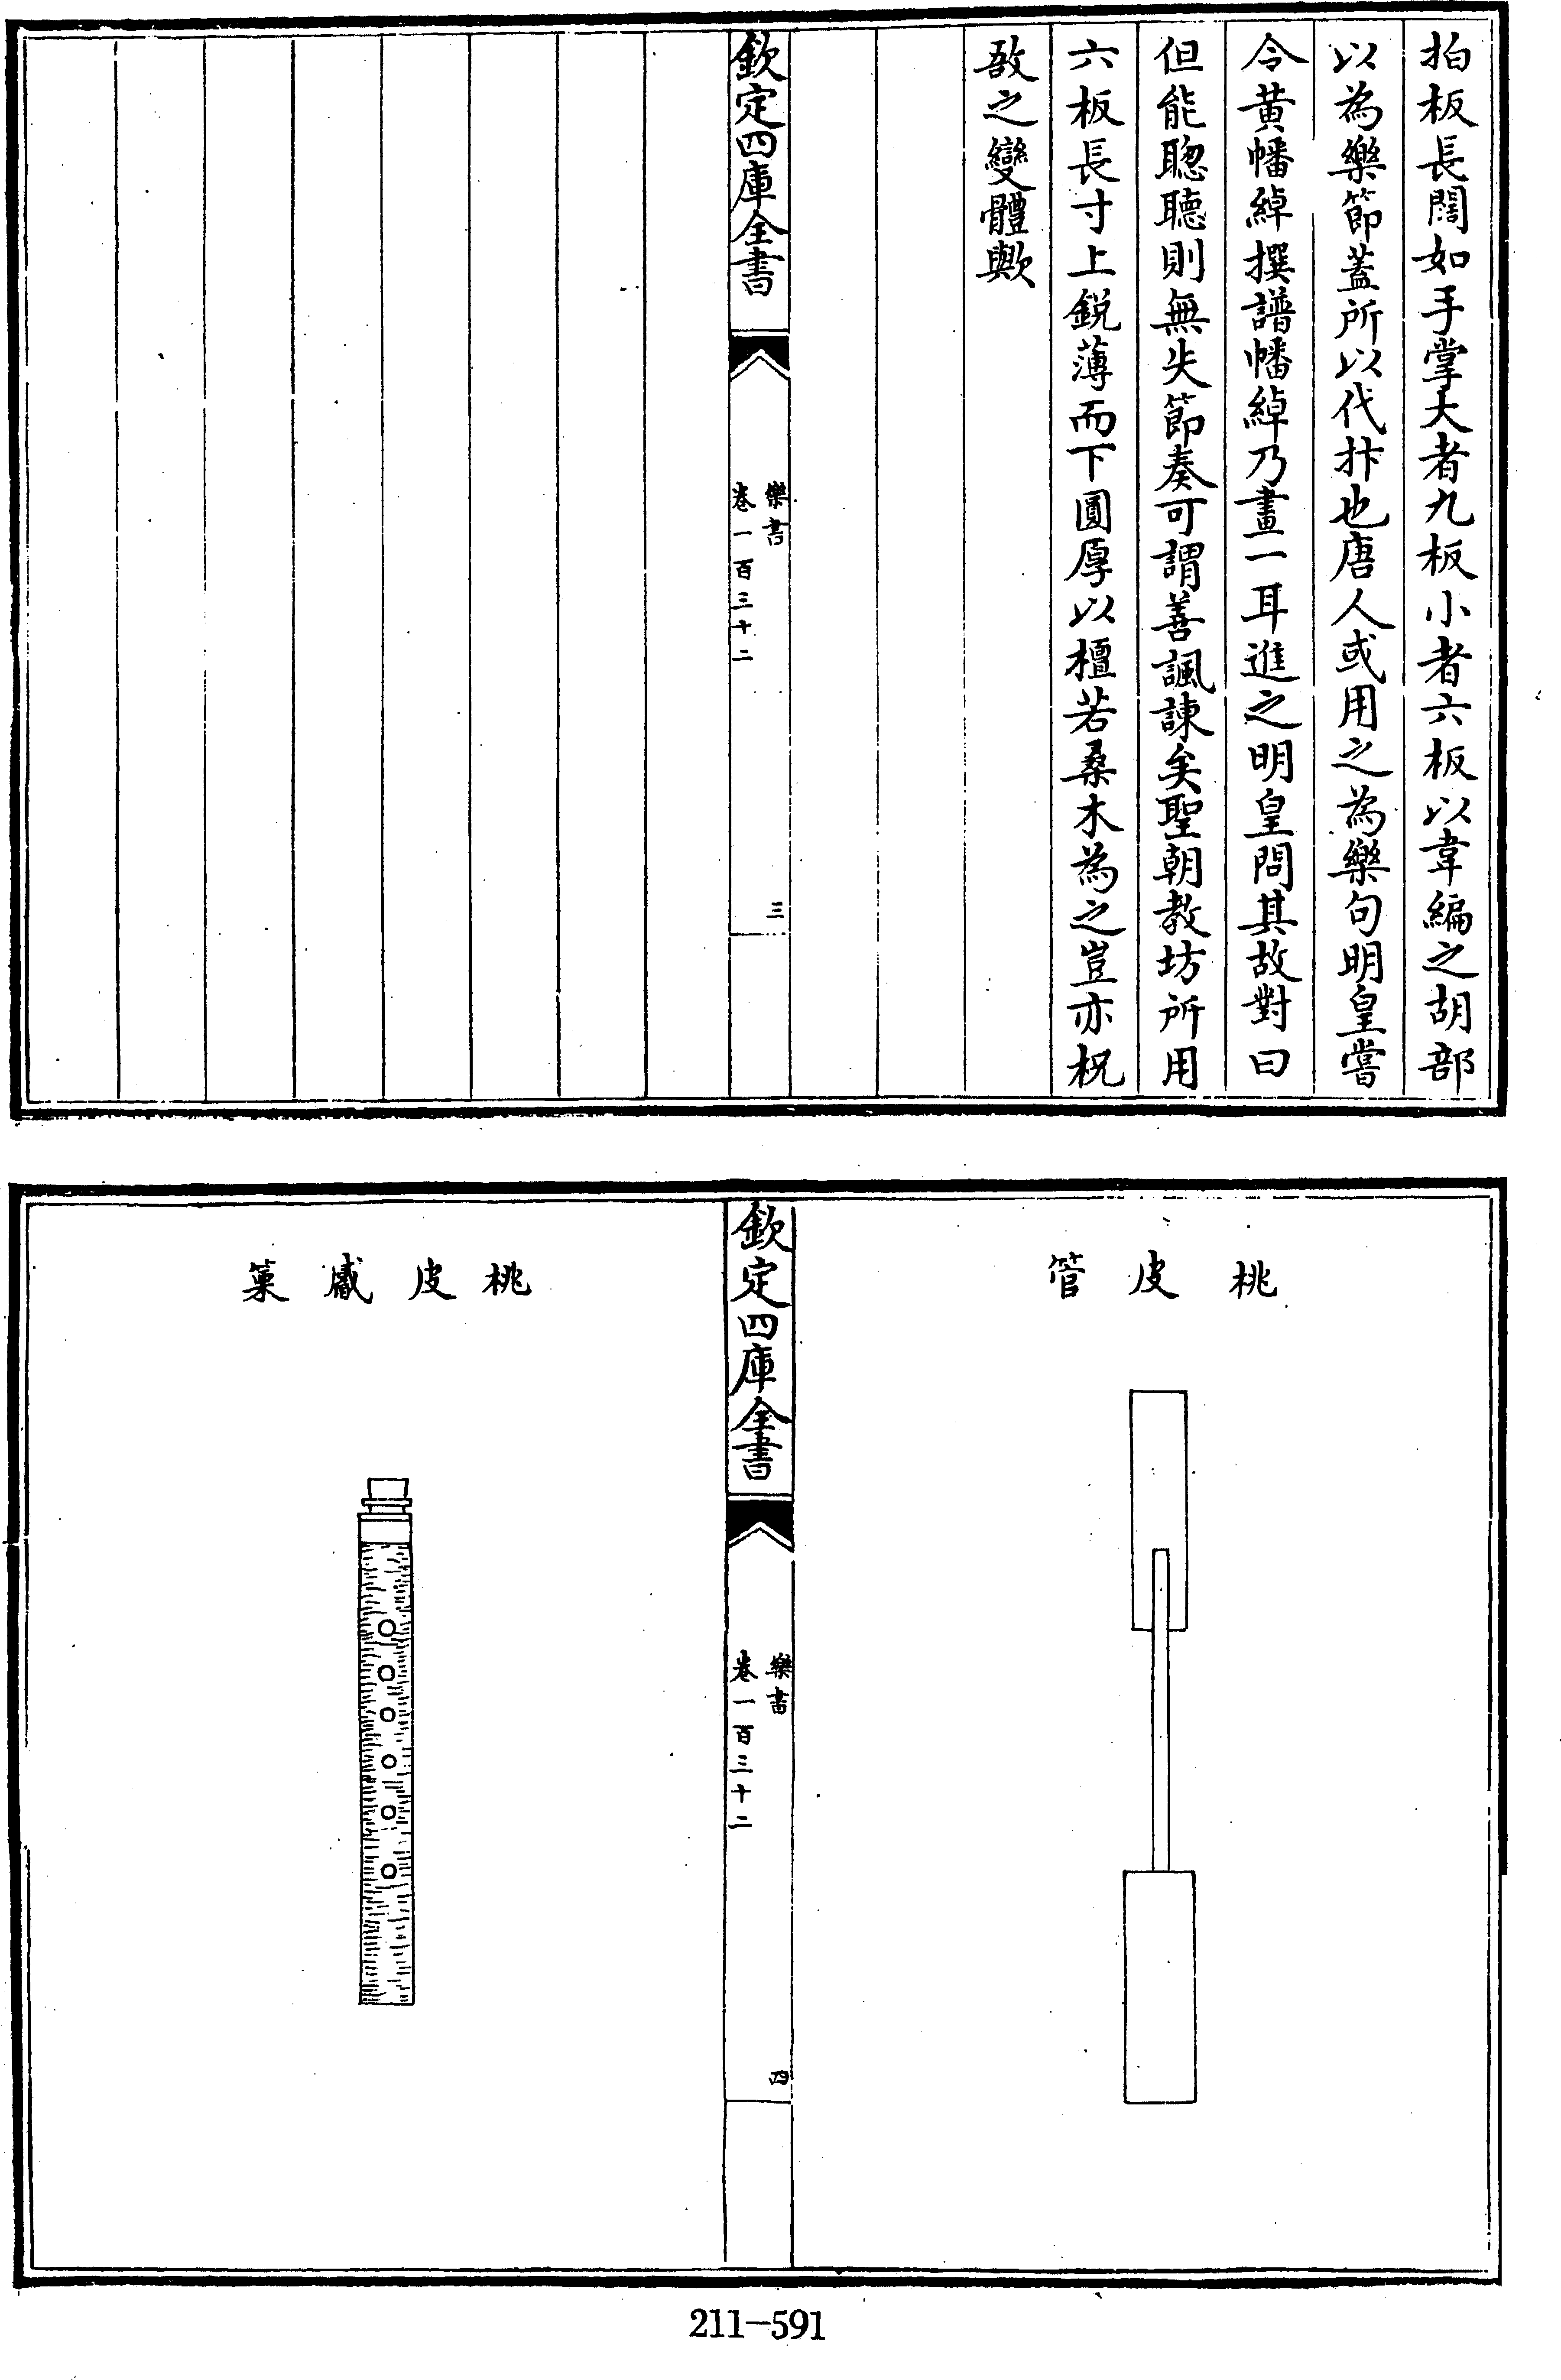 拍板長闊如手掌大者九板小者六板以韋編之胡部
以為樂節蓋所以代抃也唐人或用之為樂句明皇嘗
令黄幡綽撰譜幡綽乃畫一耳進之明皇問其故對曰
但能聰聽則無失節奏可謂善諷諌矣聖朝教坊所用
六板長寸上鋭薄而下圓厚以檀若桑木為之豈亦柷
敔之變體歟
欽定四庫全書
樂書
卷一百三十二
三
桃皮管
欽定四庫全書
樂書
卷一百三十二
四
桃皮觱篥
211—591